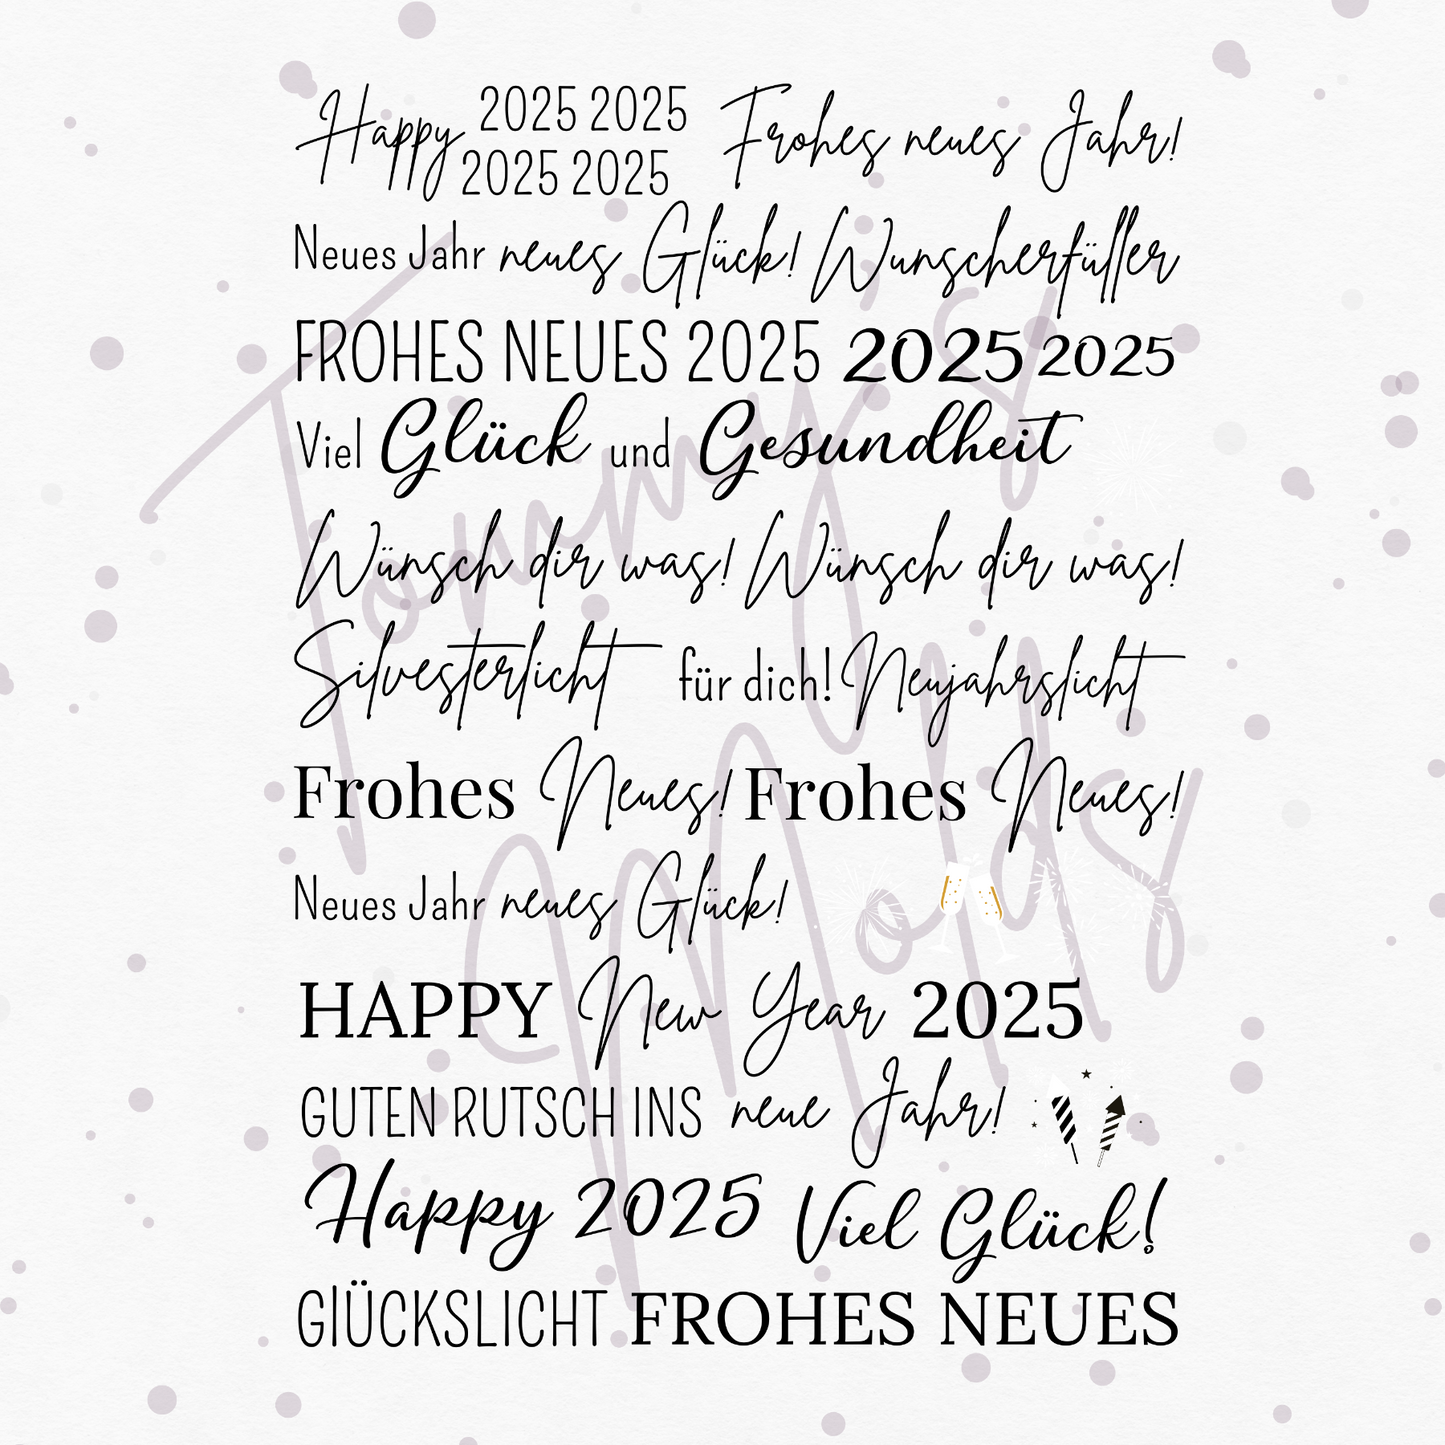 Happy 2025 2025 Frohes neues Jahr!
2025 2025
Neues Jahr neues Glück! Wunscherfüller
FROHES NEUES 2025 2025 2025
Viel Glück und Gesundheit
Wünsch dir was! Wünsch dir was!
Silvesterlicht für dich! Neujahrslicht
Frohes Neues! Frohes Neues!
Neues Jahr neues Glück!
HAPPY New Year 2025
GUTEN RUTSCH INS neue Jahr!
Happy 2025 Viel Glück!
GlÜCKSLICHT FROHES NEUES
Tommy's
Molds